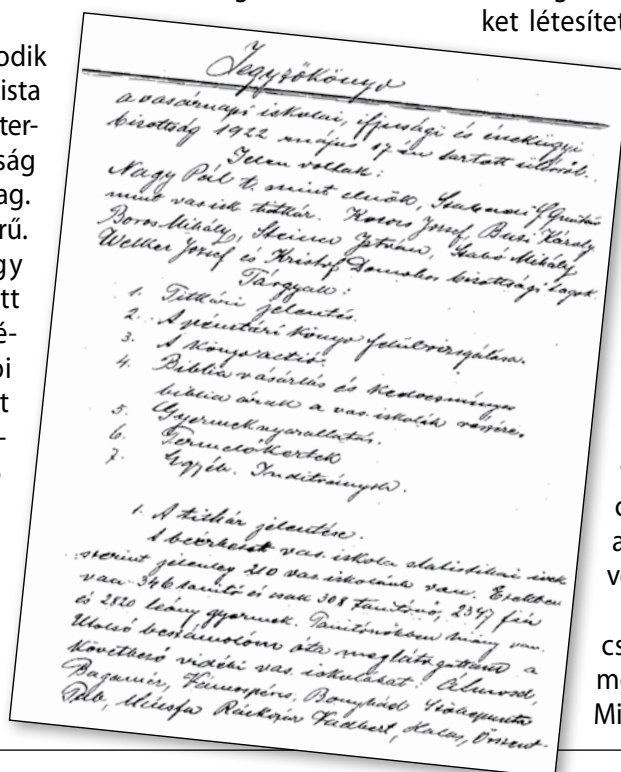 ket létesítet
odik
ista
ter-
ság
ag.
rű.
gy
tt
é-
oi
t
-
Jegyzőkönyv
a vasárnapi iskolai, ifjusági és énekügyi
bizottság 1922 május 17 én tartott üléséről.
Jelen voltak:
Nagy Pál t. mint elnök,
mint vas. isk. titkár. Kocsis József, Busi Károly
Boros Mihály, Steiner István, Szabó Mihály
Welker József és Kristóf Domokos bizottsági tagok.
Tárgyak:
1. Titkári jelentés.
2. A pénztári könyv felülvizsgálása.
3. A könyvactió.
4. Biblia vásárlás és kedvezményes
biblia árak a vas. iskolák részére.
5. Gyermeknyaraltatás.
6. Termelőkertek
7. Egyéb. Indítványok.
1. A titkár jelentése.
A beérkezett vas. iskola statistikai ivek
szerint jelenleg 210 vas. iskolánk van. Ezekben
van 346 tanító és csak 308 tanítónő, 2347 fiú
és 2820 leány gyermek. Tanítónőkben hiány van.
Utolsó beszámolóm óta meglátogattam a
következő vidéki vas. iskolákat: Álmosd,
Bagamér, Vámospércs, Bonyhád
Ráckozár Halas,
c
a
v
cs
m
Mi